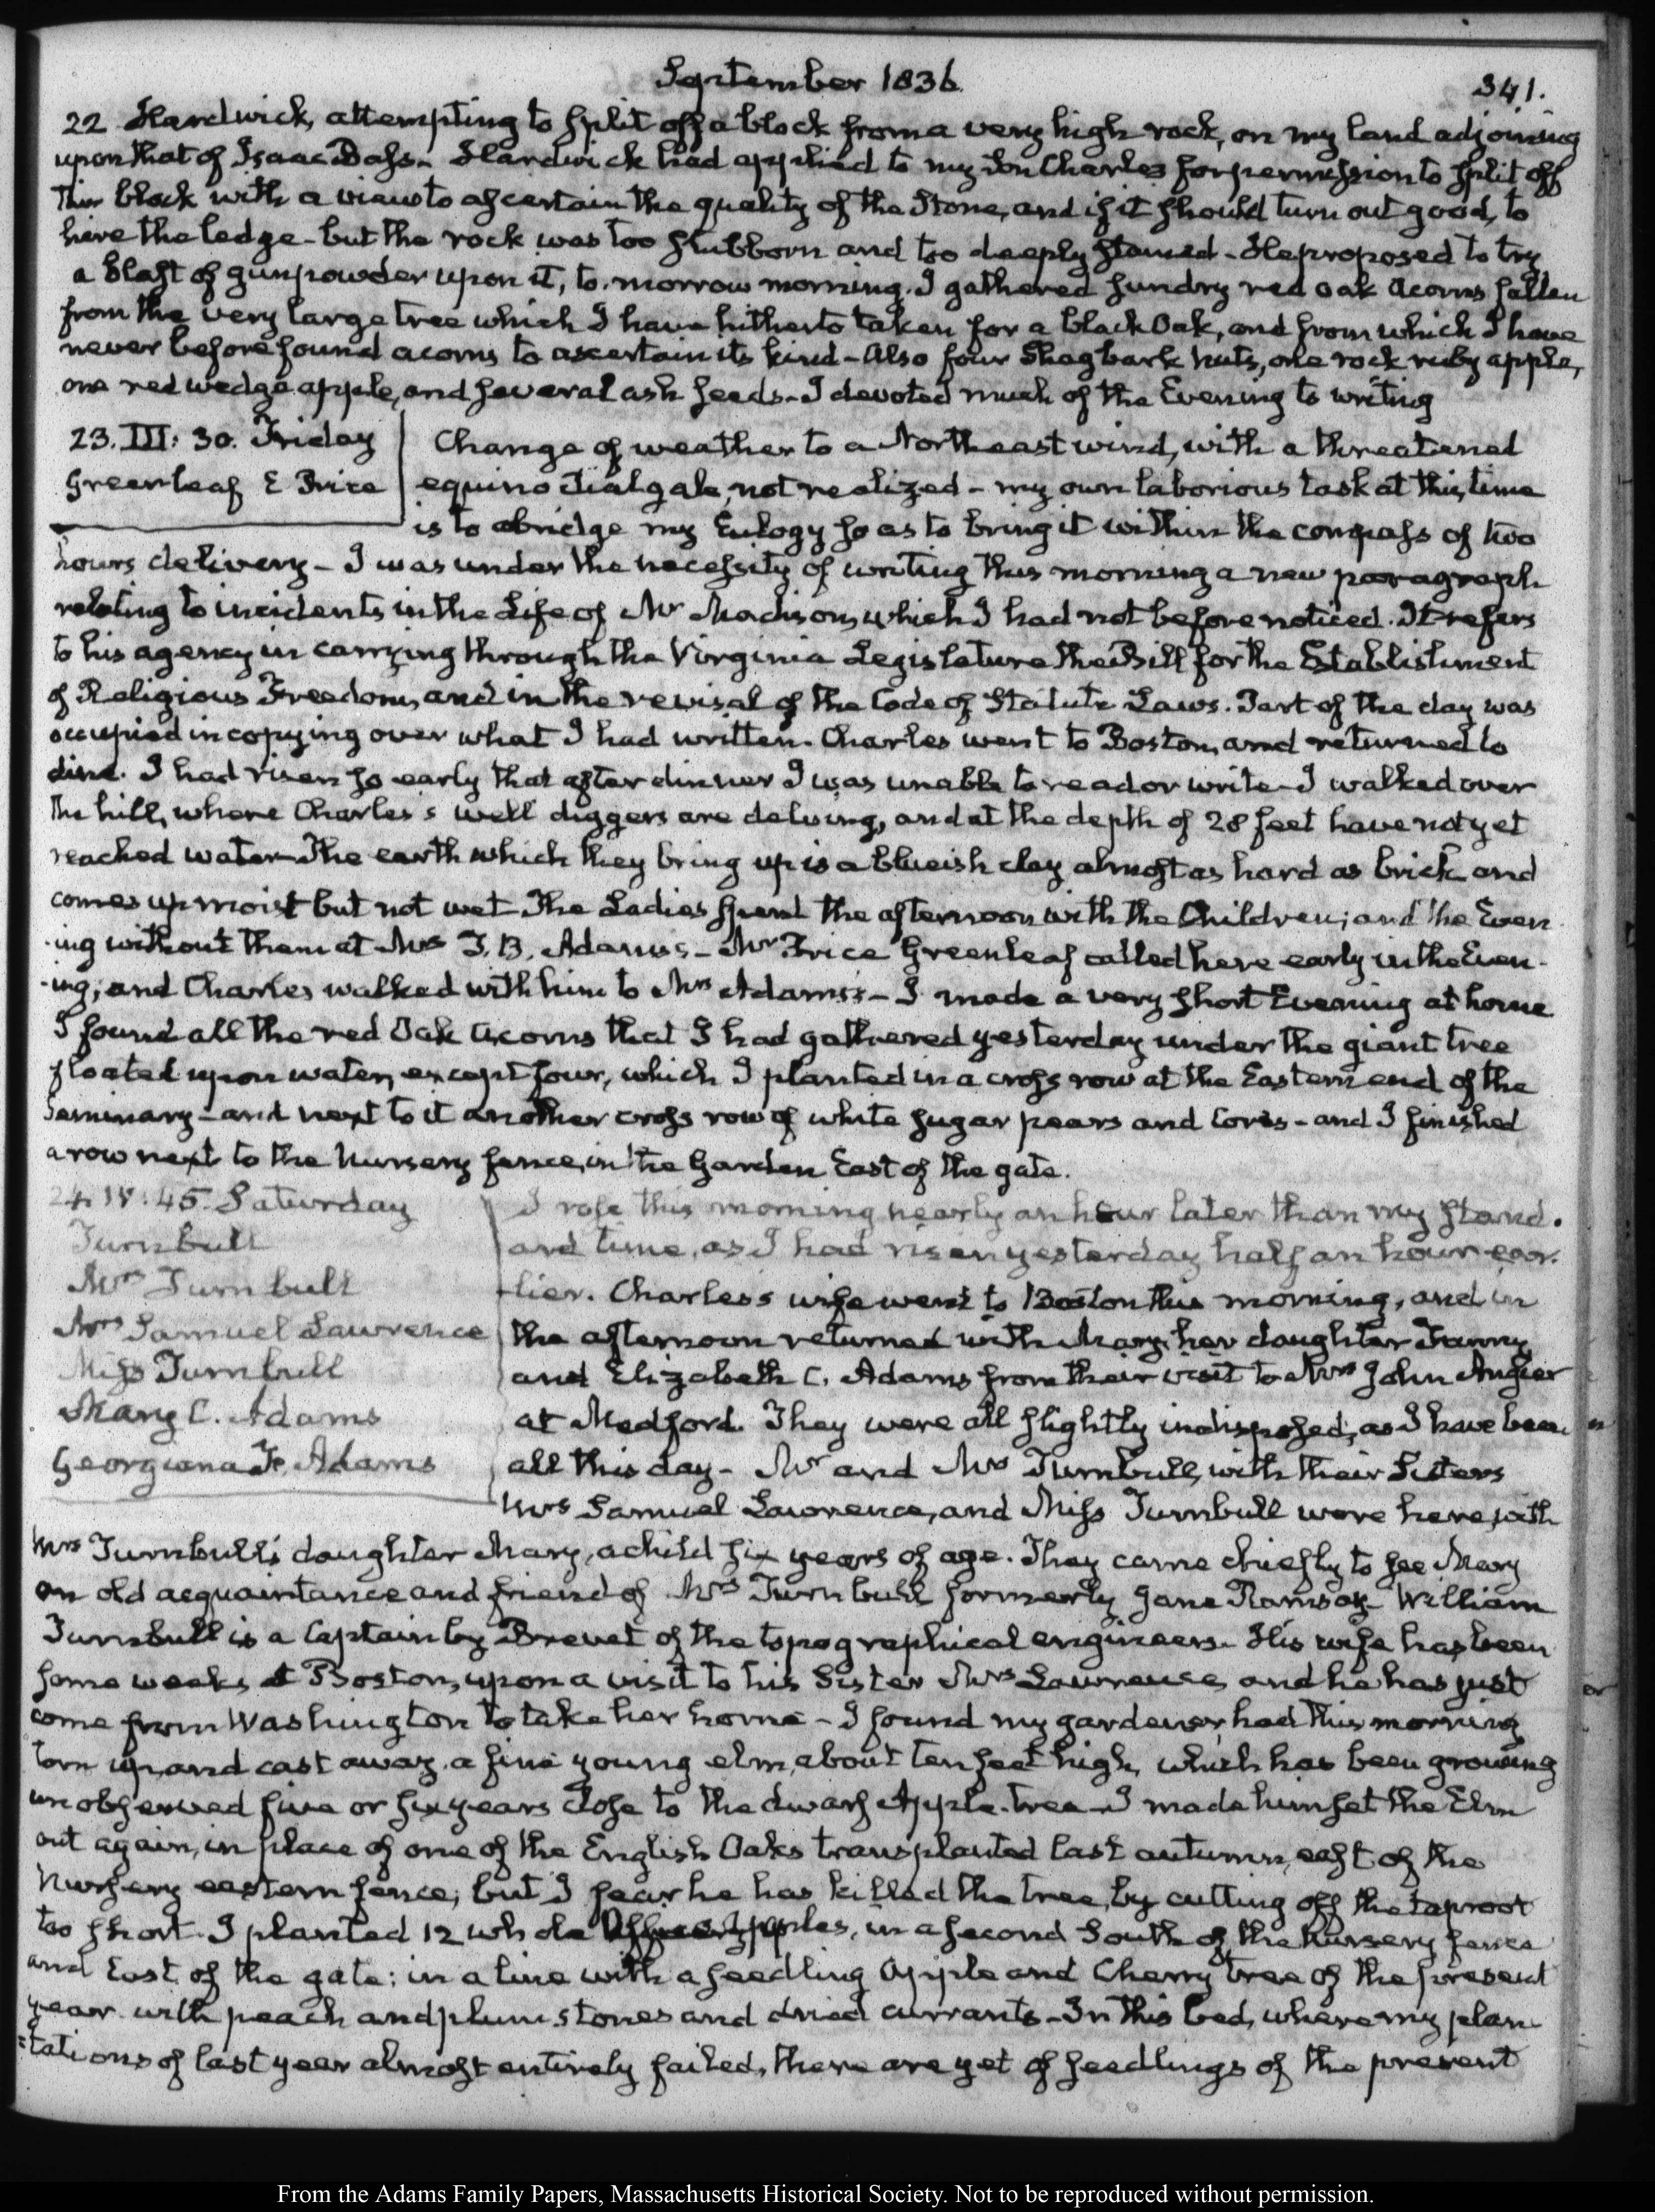 September 1836.
341.
22 Hardwick, attempting to split off a block from a very high rock, on my land adjoining
upon that of Isaac Bass. Hardwick had applied to my Son Charles for permission to split off
this block with a view to ascertain the quality of the Stone, and if it should turn out good, to
hire the ledge - but the rock was too stubborn and too deeply stained - He proposed to try
a blast of gunpowder upon it, to-morrow morning. I gathered sundry red oak acorns fallen
from the very large tree which I have hitherto taken for a black Oak, and from which I have
never before found acorns to ascertain its kind - Also four Shagbark nuts, one rock ruby apple,
one red wedge apple, and several ash seeds - I devoted much of the Evening to writing
23. III: 30. Friday
Greenleaf E Price
Change of weather to a Northeast wind, with a threatened
equinoctial gale, not realized - my own laborious task at this time
is to abridge my Eulogy so as to bring it within the compass of two
hours delivery - I was under the necessity of writing this morning a new paragraph
relating to incidents in the Life of Mr Madison, which I had not before noticed. It refers
to his agency in carrying through the Virginia Legislature the Bill for the Establishment
of Religious Freedom, and in the revisal of the Code of Statute Laws. Part of the day was
occupied in copying over what I had written. Charles went to Boston, and returned to
dine. I had risen so early that after dinner I was unable to read or write - I walked over
the hill, where Charles's well diggers are delving, and at the depth of 28 feet have not yet
reached water - The earth which they bring up is a blueish clay almost as hard as brick and
comes up moist but not wet - The Ladies spent the afternoon with the Children; and the Even
-ing without them at Mrs T. B. Adams's - Mr Price Greenleaf called here early in the Even-
-ing; and Charles walked with him to Mrs Adams's - I made a very short Evening at home
I found all the red Oak acorns that I had gathered yesterday under the giant tree
floated upon water, except four, which I planted in a cross row at the Eastern end of the
Seminary - and next to it another cross row of white sugar pears and Cores - and I finished
a row next to the Nursery fence, in the Garden East of the gate.
24. IV: 45. Saturday
Turnbull
Mrs Turnbull
Mrs Samuel Lawrence
Miss Turnbull
Mary C. Adams
Georgiana F. Adams
I rose this morning nearly an hour later than my stand-
ard time, as I had risen yesterday half an hour ear-
-lier. Charles's wife went to Boston this morning, and in
the afternoon returned with Mary, her daughter Fanny
and Elizabeth C. Adams from their visit to Mrs John Angier
at Medford. They were all slightly indisposed, as I have been
all this day - Mr and Mrs Turnbull, with their Sisters
Mrs Samuel Lawrence, and Miss Turnbull were here, with
Mrs Turnbull's daughter Mary, a child six years of age. They came chiefly to see Mary
an old acquaintance and friend of Mrs Turnbull formerly Jane Ramsay - William
Turnbull is a Captain by Brevet of the topographical engineers - His wife has been
some weeks at Boston, upon a visit to his Sister Mrs Lawrence, and he has just
come from Washington to take her home - I found my gardener had this morning
torn up, and cast away, a fine young elm, about ten feet high, which has been growing
unobserved five or six years close to the dwarf Apple-tree - I made him set the Elm
out again, in place of one of the English Oaks transplanted last autumn, east of the
Nursery eastern fence; but I fear he has killed the tree, by cutting off the taproot
too short. I planted 12 whole apples, in a second South of the Nursery fence
and East of the gate: in a line with a seedling Apple and Cherry tree of the present
year. with peach and plum stones and dried currants - In this bed, where my plan-
=tations of last year almost entirely failed, there are yet of seedlings of the present
From the Adams Family Papers, Massachusetts Historical Society. Not to be reproduced without permission.